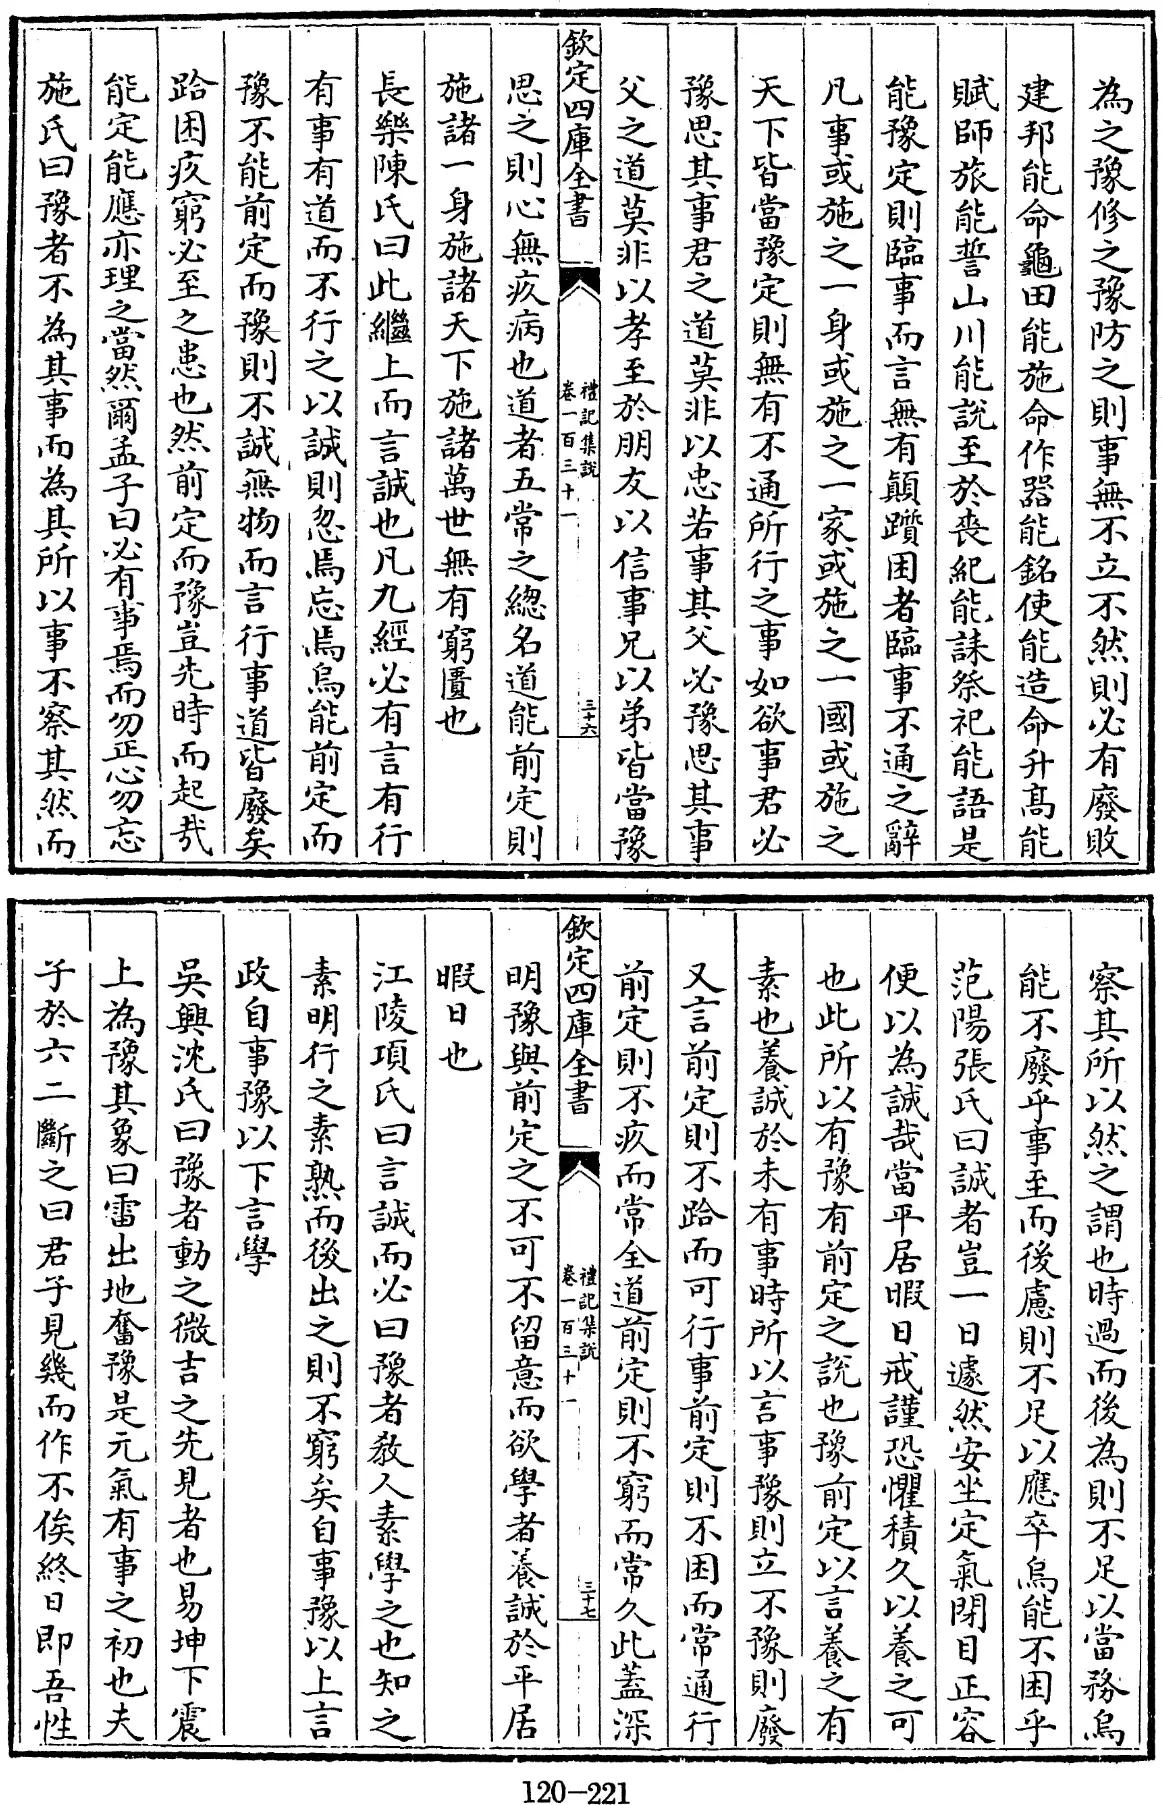 為之豫修之豫防之則事無不立不然則必有廢敗
建邦能命龜田能施命作器能銘使能造命升高能
賦師旅能誓山川能說至於喪紀能誄祭祀能語是
能豫定則臨事而言無有顛躓困者臨事不通之辭
凡事或施之一身或施之一家或施之一國或施之
天下皆當豫定則無有不通所行之事如欲事君必
豫思其事君之道莫非以忠若事其父必豫思其事
父之道莫非以孝至於朋友以信事兄以弟皆當豫
欽定四庫全書
禮記集說
卷一百三十一
三十六
思之則心無疚病也道者五常之總名道能前定則
施諸一身施諸天下施諸萬世無有窮匱也
長樂陳氏曰此繼上而言誠也凡九經必有言有行
有事有道而不行之以誠則忽焉忘焉烏能前定而
豫不能前定而豫則不誠無物而言行事道皆廢矣
跲困疚窮必至之患也然前定而豫豈先時而起哉
能定能應亦理之當然爾孟子曰必有事焉而勿正心勿忘
施氏曰豫者不為其事而為其所以事不察其然而
察其所以然之謂也時過而後為則不足以當務烏
能不廢乎事至而後慮則不足以應卒烏能不困乎
范陽張氏曰誠者豈一日遽然安坐定氣閉目正容
便以為誠哉當平居暇日戒謹恐懼積久以養之可
也此所以有豫有前定之說也豫前定以言養之有
素也養誠於未有事時所以言事豫則立不豫則廢
又言前定則不跲而可行事前定則不困而常通行
前定則不疚而常全道前定則不窮而常久此蓋深
欽定四庫全書
禮記集說
卷一百三十一
三十七
明豫與前定之不可不留意而欲學者養誠於平居
暇日也
江陵項氏曰言誠而必曰豫者教人素學之也知之
素明行之素熟而後出之則不窮矣自事豫以上言
政自事豫以下言學
吳興沈氏曰豫者動之微吉之先見者也易坤下震
上為豫其象曰雷出地奮豫是元氣有事之初也夫
子於六二斷之曰君子見幾而作不俟終日即吾性
120-221